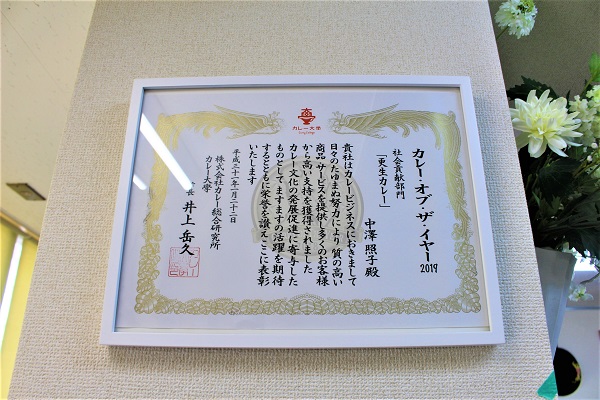 カレー大學
カレー・オブ・ザ・イヤー2019
社会貢献部門
「更生カレー」
中澤 照子 殿
貴社はカレービジネスにおきまして
日々のたゆまぬ努力により質の高い
商品・サービスを提供し多くのお客様
から高い支持を獲得されました
カレー文化の発展促進に寄与した
ものとしてますますの活躍を期待
するとともに栄誉を讃えここに表彰
いたします
平成三十一年一月二十二日
株式会社カレー総合研究所
カレー大学
長 井上 岳久